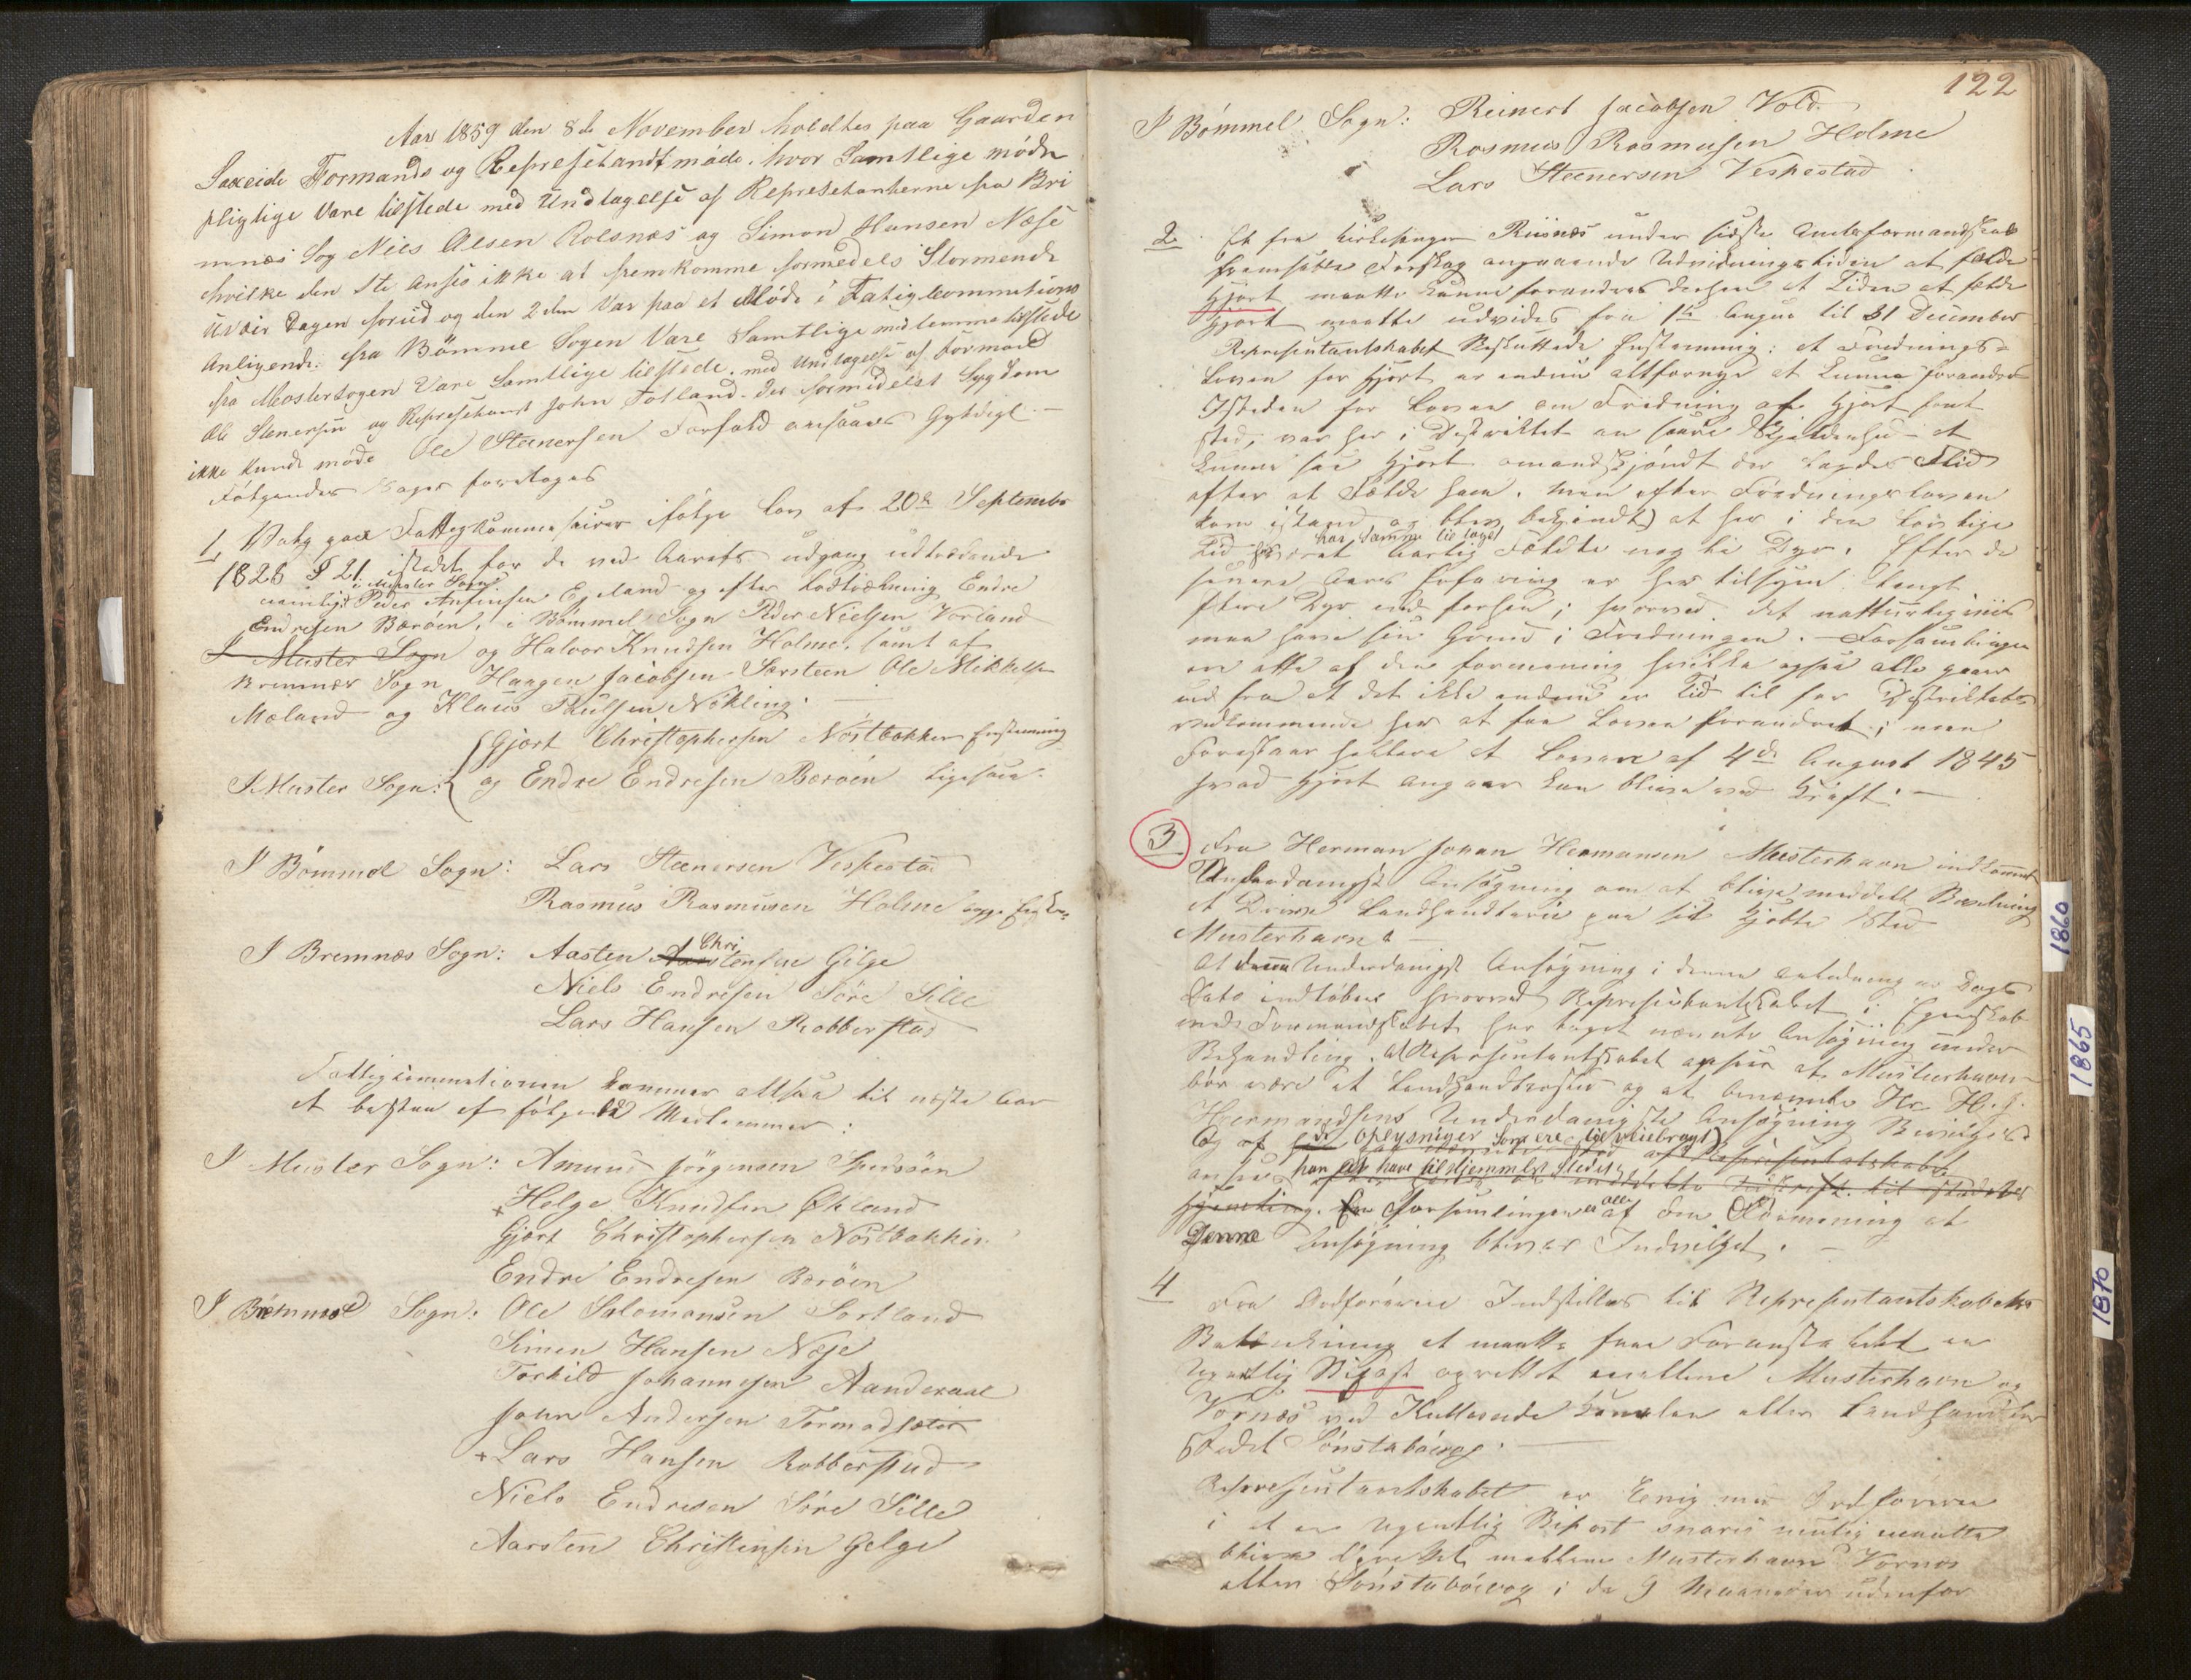 Aar 1859 den 8de November holdtes paa Gaarden
Saxeide Formands og Represetandtmøde. hvor Samtlige møde
pligtige Vare tilstede med Undtagelse af Represetanterne fra Bri
mnæs Sog Niels Olsen Rolsnæs og Simon Hansen Næse
hvilke den 1te Ansees ikke at fremkomme formedels Stormende
Uveir Dagen forud og den 2den Var paa et Møde i Fatigkommitions
Anligende. fra Bømme Sogen Vare Samtlige midlemme tilstede
fra Mostersogen Vare Samtlige tilstede. med Undtagelse af formand
Ole Stenersen og Represetant John Totland. der formidelst Sygdom
ikke kunde møde Ole Steenersen Forfald ansaaes Gyldigt. —
Følgende Sager foretoges
1, Valg paa Fattigkommissairer ifølge Lov af 20de Septembr
1826 § 21 istedet for de ved Aarets udgang udtrædende
i Moster Sogn
nemlig Peder Anfinsen Egeland og efter Lodtrækning Endre
Endresen Børøen, i Bømmel Sogn Peder Nielsen Vorland
I Muster Sogn og Halvor Knudsen Holme, samt af
Bremnæs Sogn Haagen Jacobsen Sarsteen Ole Mikkels
Mæland og Klaus Paulsen Nøkling. —
I Muster Sogn: Gjort Christophersen Nøstbakken Enstemmig
og Endre Endresen Børøen ligesaa.
I Bømmel Sogn: Lars Steenersen Vespestad
Rasmus Rasmusen Holme begge
I Bremnæs Sogn: Aasten Chri Aarstensen Gilge
Niels Endresen Søre Sille
Lars Hansen Robberstad
Fattigcommitionen kommer altsaa til næste Aar
at bestaa af følgende Medlemmer:
I Muster Sogn: Amund Jørgensen Spidsøen
× Helge Knudsen Økland
Gjort Christophersen Nøstbakken
Endre Endresen Børøen
I Bremmel Sogn. Ole Salomonsen Sortland
Simen Hansen Næse
Torkild Johannesen Aanderaae
John Andersen Tormodsæter
× Lars Hansen Robberstad
Niels Endresen Søre Sille
Aarsten Christensen Gelge
122
I Bømmel Sogn: Reinert Jacobsen Vold.
Rasmus Rasmusen Holme
Lars Steenersen Vespestad
2. Et fra Kirkesanger Riisnæs under sidste Amtsformandskab
fremsatte Forslag angaaende Udvidningstiden at fælde
Hjort maatte kunne forandres derhen at Tiden at fælde
Hjort maatte udvides fra 1ste August til 31 December
Representantskabet Besluttede Enstemmig: at Frednings-
Loven for Hjort er endnu altfor nye at kunne forandres
Istedet for Loven om Fredning af Hjort fant
sted, var her i Distriktet en saare Sjeldenhed at
kunne see Hjort omendskjøndt der lagdes Flid
efter at Fælde ham. men efter Fredningsloven
kom istand og blev bekjendt at her i den lovlige
har Samme tiltaget
Tid aarlig Fældte nogle Dyr. Efter de
senere Aars Erfaring er her tilsyne langt
flere Dyr end forhen; hvorved det natturligviis
maa have sin Grund i Fredningen. — Forsamlingen
ere alle af den formening hvilke ogsaa alle gaaer
ud fra at det ikke endnu er Tid til for Distriktets
vedkommende her at faa Loven forandret; men
Foreslaar hellere at Loven af 4de August 1845
hvad Hjort angaar kan blive ved Kraft. —
3 Fra Herman Johan Hermansen Musterhavn indkommet
Underdanigst Ansøgning om at blive meddelt Bevilning
at Drive Landhandlerie paa sit Kjøbte Sted
Musterhavn. —
At denne Underdanigst Ansøgning i denne anledning er Dags
Dato indløben hvorved Representantskabet i Egenskab
med Formandskabet har taget nævnte Ansøgning under
Behandling. At Representantskabet anseer at Musterhavn
bør være et Landhandlersted og at benævnte Hr. H. J.
Hermandsens Underdanigste Ansøgning Bevilges.
Og af de Oplysninger Som ere tilveiebragt
anseer han at have til Hjemmels Stedets
Forsamlingen er alle af den Formening at
Denne Ansøgning bliver Indvilget. —
4 Fra Ordføreren Indstilles til Representantskabets
Betænkning at maatte faae Foranstaltet en
Ugentlig Bipost oprettet mellem Musterhavn og
Vornæs ved Kulleseids Kanalen eller Landhandler
stedet Sønstabøvog. —
Representantskabet er Enig med Ordføreren
i at en Ugentlig Bipost snarest mulig maatte
blive Oprettet mellem Musterhavn Vornæs
eller Sønstabøvog i de 9 Maaneder udenfor
1860
1865
1870